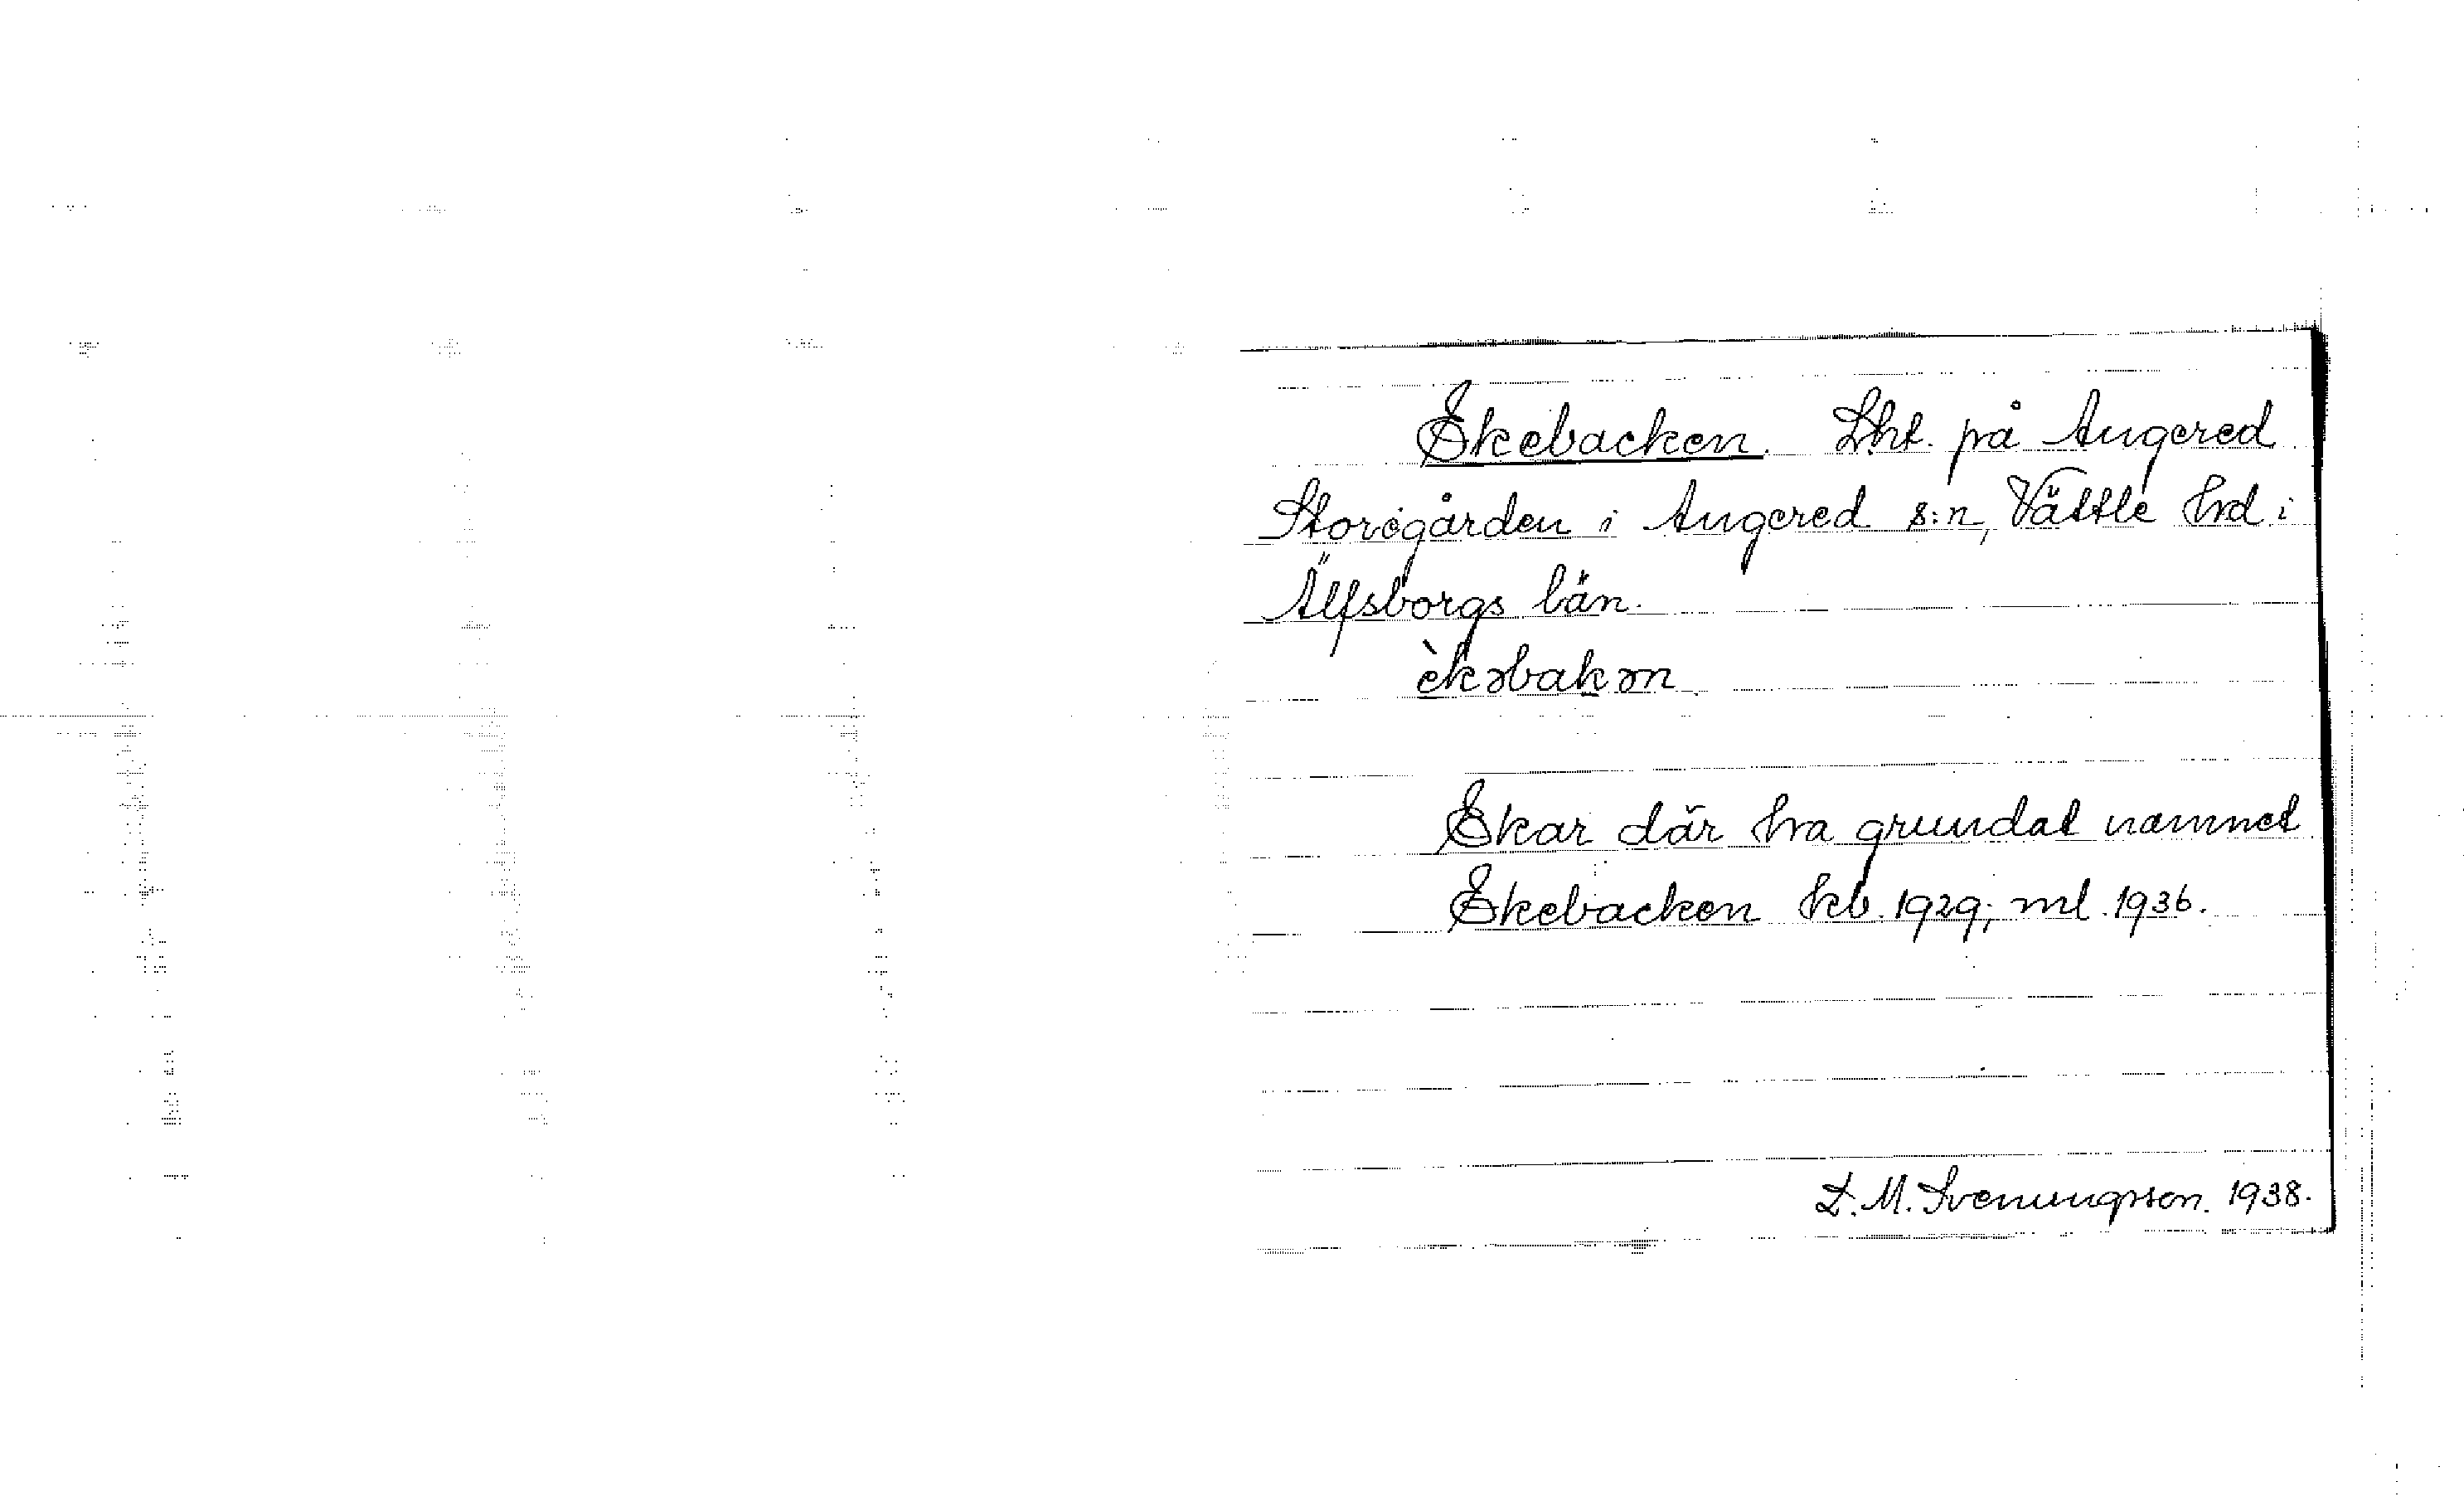 Ekebacken. Lht. på Angered
Storegården i Angered s:n, Vättle hrd i
Älfsborgs län.
èkəbakən
Ekar där ha grundat namnet
Ekebacken kb. 1929; ml. 1936.
L. M. Svenungsson. 1938.